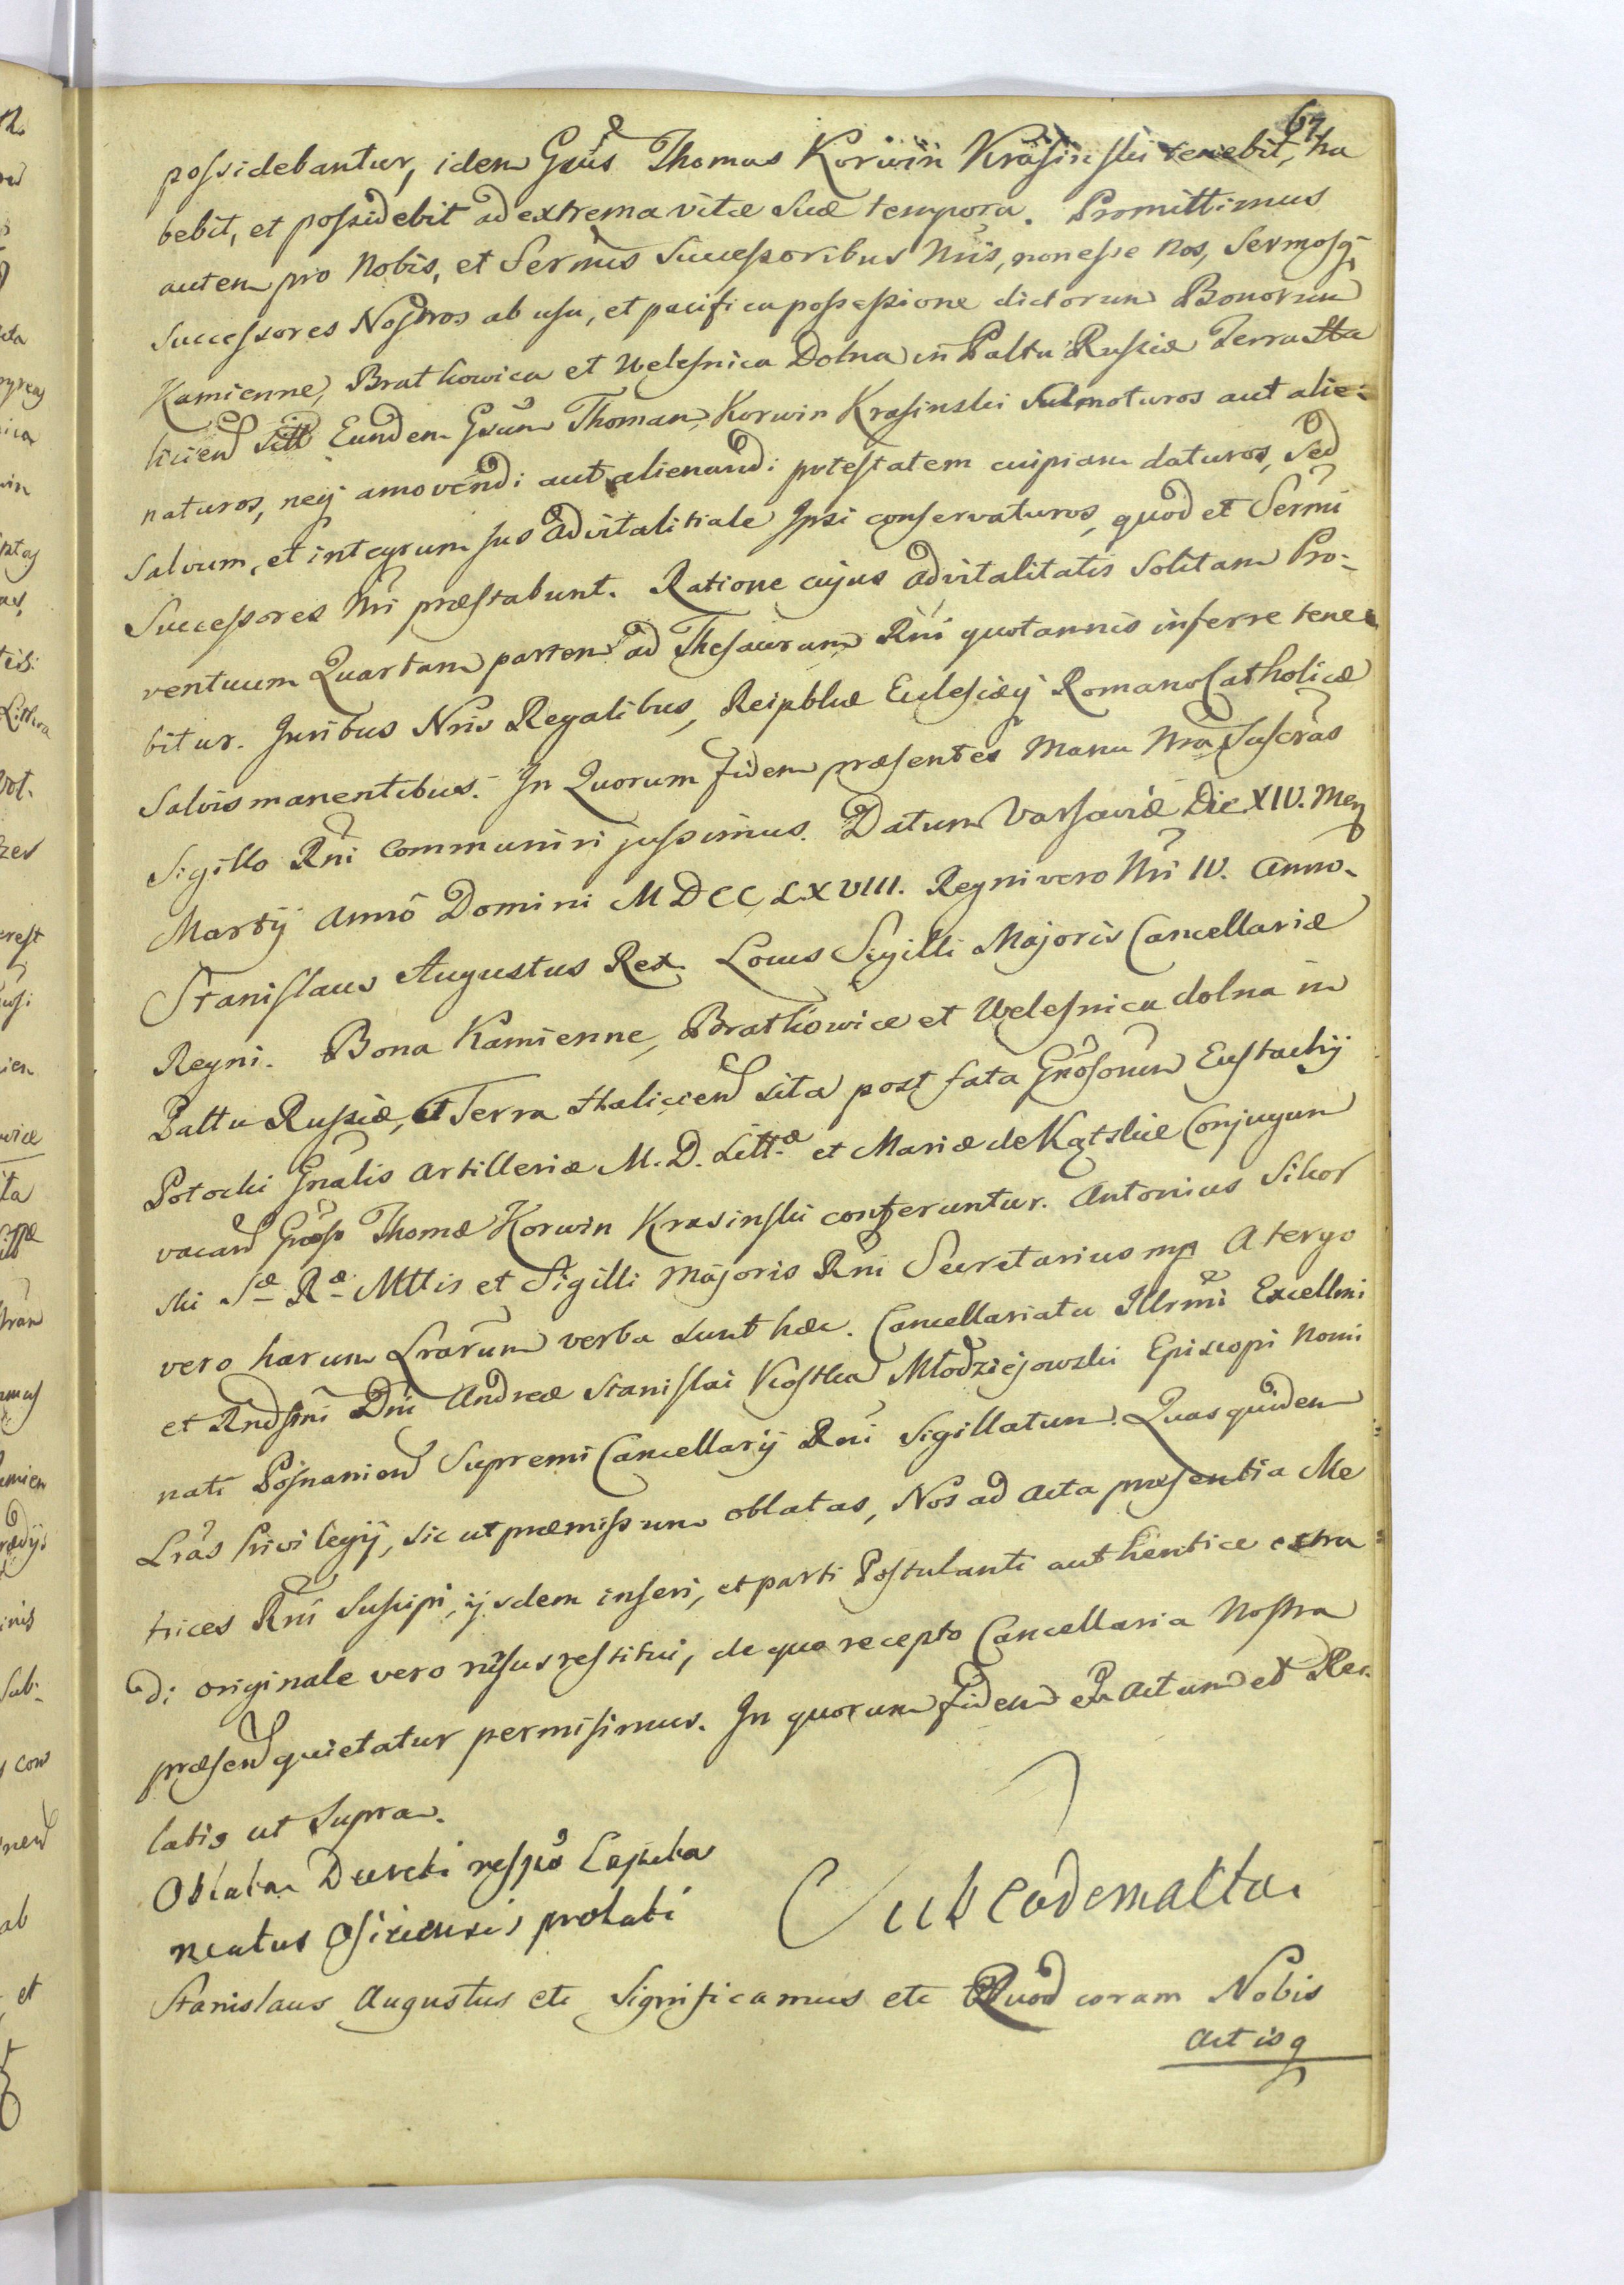 67
possidebantur, idem Gsus Thomas Korwin Krasinski tenebit, ha
bebit, et possidebit ad extrema vitæ suæ tempora. Promittimus
autem pro Nobis, et Sermis Successoribus Nris, non esse Nos, Sermosq
Successores Nostros ab usu, et pacifica possessione dictorum Bonorum
Kamienne, Bratkowica et Welesnica Dolna in Paltu Russiæ Terra Ha
liciend Sitt Eundem Gsum Thomam Korwin Krasinski Submoturos aut alie:
naturos, neq amovendi aut alienandi potestatem cuipiam daturos, Sed
Salvum, et integrum Jus Advitalitiale Ipsi conservaturos, quod et Sermi
Successores Nri præstabunt. Ratione cujus advitalitatis Solitam Pro-
ventuum Quartam partem ad Thesaurum Rni quotannis inferre tene
bitur. Juribus Nris Regalibus, Reipblcæ Eclesiæq Romano Catholicæ
Salvis manentibus. In Quorum fidem præsentes Manu Nra Suscras
Sigillo Rni communiri jussimus. Datum Varsaviæ Die XIV. Men
Martij Anno Domini MDCCLXVIII. Regni vero Nri IV. Anno.
Stanislaus Augustus Rex. Locus Sigilli Majoris Cancellariæ
Regni. Bona Kamienne, Bratkowice et Welesnica dolna in
Paltu Russiæ, et Terra Haliciend sita post fata Gnosorum Eustachij
Potocki Gnalis Artilleriæ M. D. Litt.æ et Mariæ de Kątskie Conjugum
vacand Gnoso Thomæ Korwin Krasinski conferuntur. Antonius Sikor
ski Sæ Ræ Mttis et Sigilli Majoris Rni Secretarius mp A tergo
vero harum Lrarum verba sunt hæc. Cancellariatu Illrmi Excellmi
et Rndsmi Dni Andreæ Stanislai Kostka Młodziejowski Episcopi Nomi
nati Posnaniend Supremi Cancellarij Rni Sigillatum. Quas quidem
Lras Privilegij, sic ut præmissum oblatas, Nos ad Acta præsentia Me
trices Rni Suscipi, ijsdem inseri, et parti Postulanti authentice extra
di originale vero rursus restitui, de quo recepto Cancellaria Nostra
præsend quietatur permisimus. In quorum fidem etc Actum et Re
latio ut Supra.
Oblata Decreti respu Capita
neatus Osiecensis prolati
Sub eadem acta
Stanislaus Augustus etc Significamus etc Quod coram Nobis
Actisq